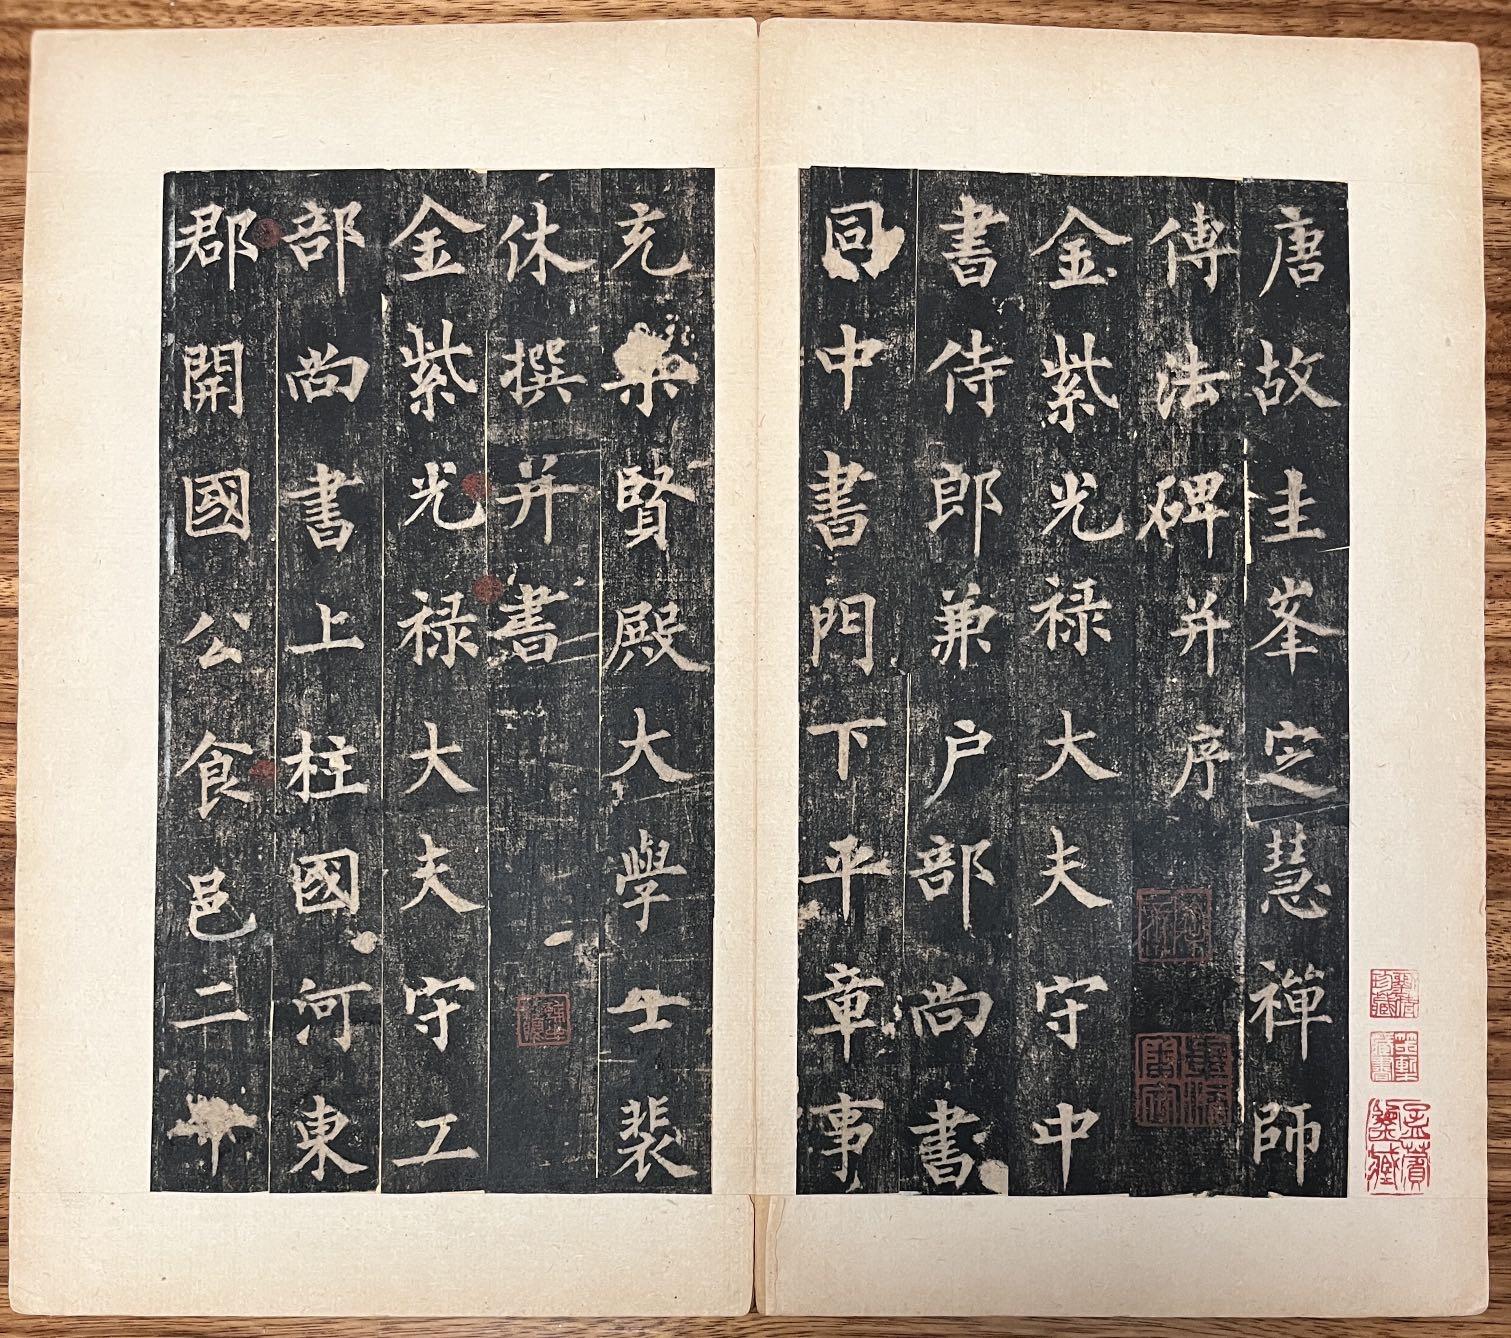 唐故圭峯定慧禪師
傳法碑并序
金紫光禄大夫守中
書侍郎兼户部尚書
同中書門下平章事
充集賢殿大學士裴
休撰并書
金紫光禄大夫守工
部尚書上柱國河東
郡開國公食邑二千